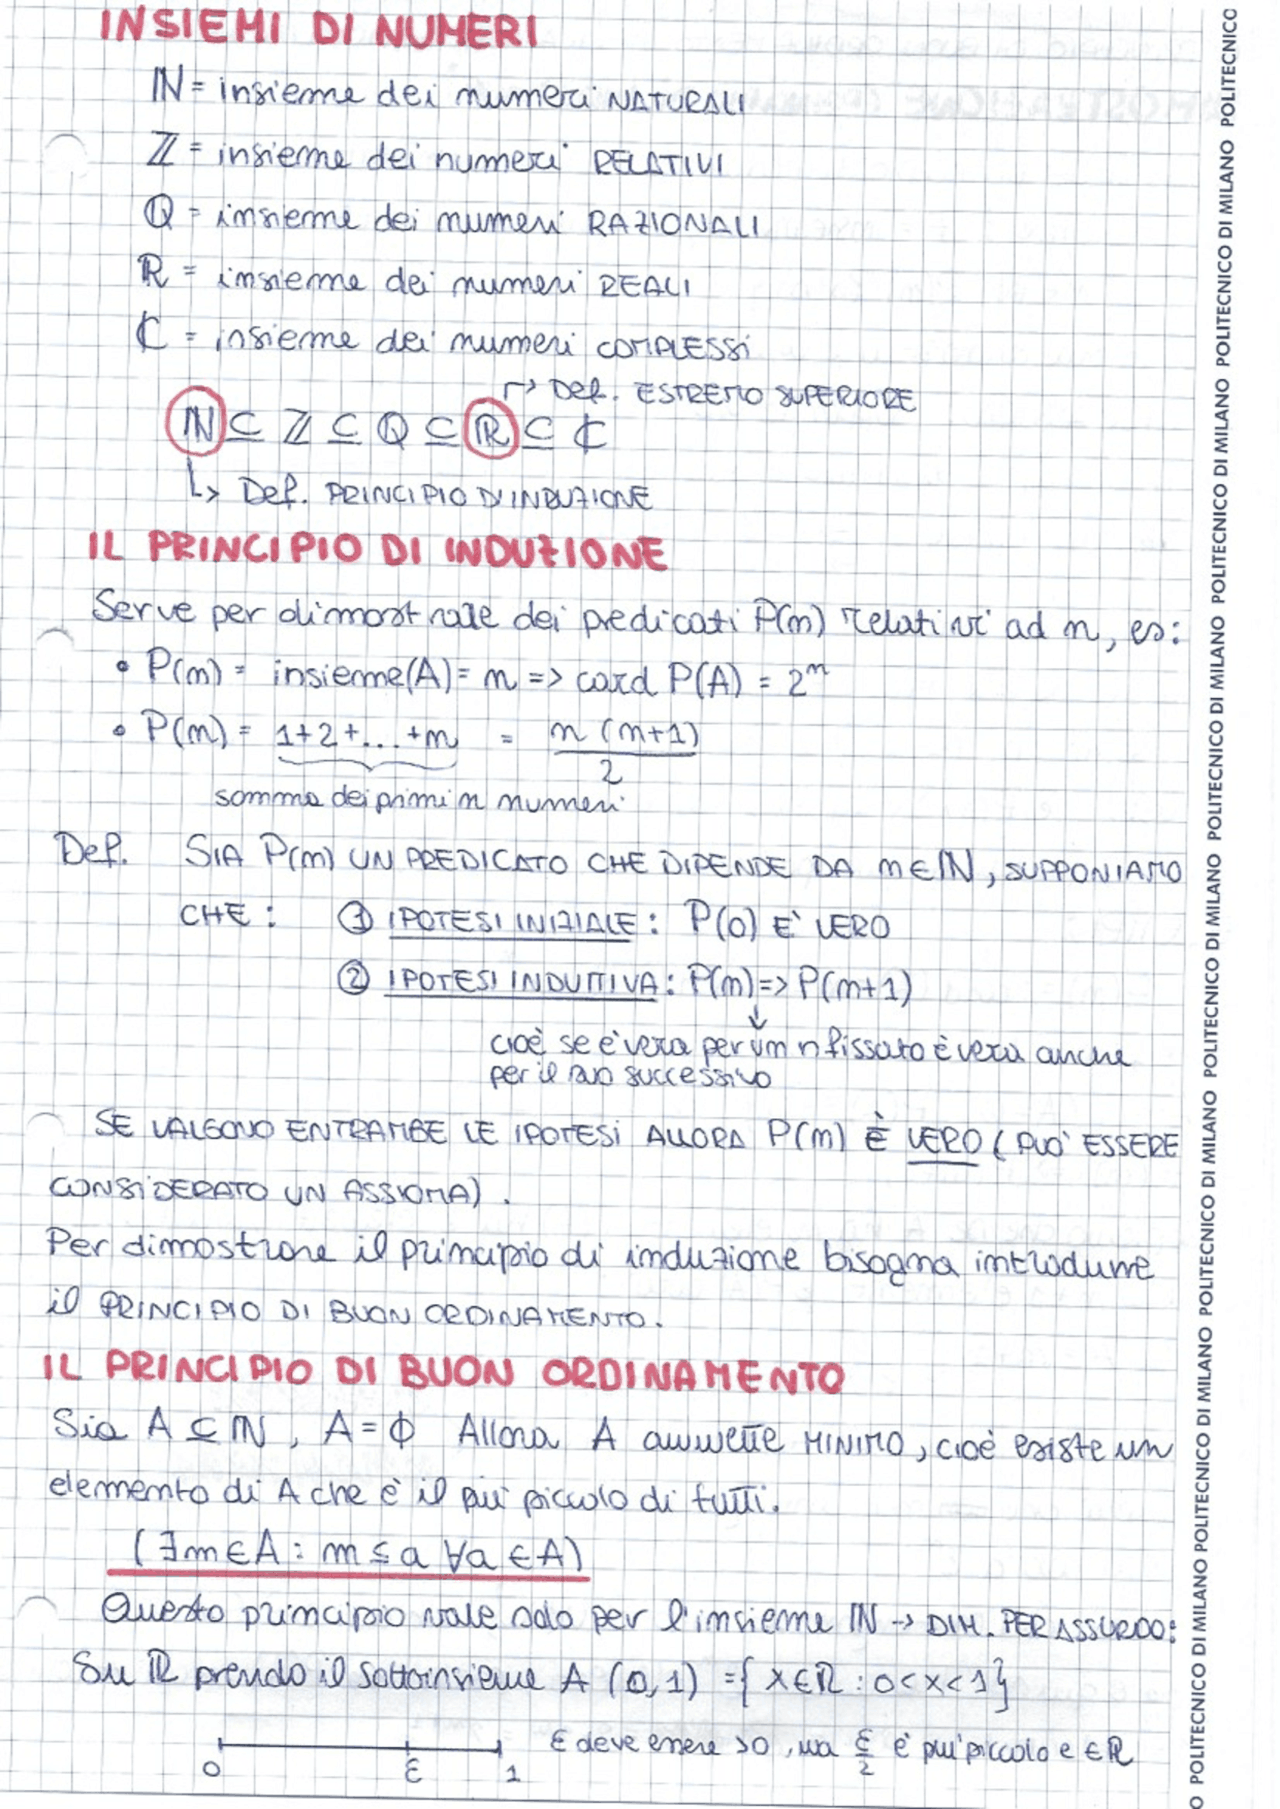 INSIEMI DI NUMERI
ℕ = insieme dei numeri NATURALI
ℤ = insieme dei numeri RELATIVI
ℚ = insieme dei numeri RAZIONALI
ℝ = insieme dei numeri REALI
ℂ = insieme dei numeri COMPLESSI
↱ Def. ESTREMO SUPERIORE
ℕ ⊆ ℤ ⊆ ℚ ⊆ ℝ ⊆ ℂ
↳ Def. PRINCIPIO D'INDUZIONE
IL PRINCIPIO DI INDUZIONE
Serve per dimostrare dei predicati P(n) relativi ad n, es:
• P(n) = insieme(A) = n => card P(A) = 2ⁿ
• P(n) = 1+2+...+n = n(n+1)/2
somma dei primi n numeri
Def. SIA P(n) UN PREDICATO CHE DIPENDE DA n∈ℕ, SUPPONIAMO
CHE: ① IPOTESI INIZIALE: P(0) E' VERO
② IPOTESI INDUTTIVA: P(n) => P(n+1)
↓
cioè se è vera per un n fissato è vera anche
per il suo successivo
SE VALGONO ENTRAMBE LE IPOTESI ALLORA P(n) È VERO (PUO' ESSERE
CONSIDERATO UN ASSIOMA).
Per dimostrare il principio di induzione bisogna introdurre
il PRINCIPIO DI BUON ORDINAMENTO.
IL PRINCIPIO DI BUON ORDINAMENTO
Sia A ⊆ ℕ, A = ϕ Allora A ammette MINIMO, cioè esiste un
elemento di A che è il più piccolo di tutti.
(∃m∈A : m ≤ a ∀a ∈A)
Questo principio vale solo per l'insieme ℕ → DIM. PER ASSURDO:
Su ℝ prendo il sottoinsieme A (0,1) = { x∈ℝ : 0<x<1}
ε deve essere >0, ma ε/2 è più piccolo e ∈ℝ
0 ε 1
POLITECNICO DI MILANO POLITECNICO DI MILANO POLITECNICO DI MILANO POLITECNICO DI MILANO POLITECNICO DI MILANO POLITECNICO DI MILANO POLITECNICO DI MILANO POLITECNICO